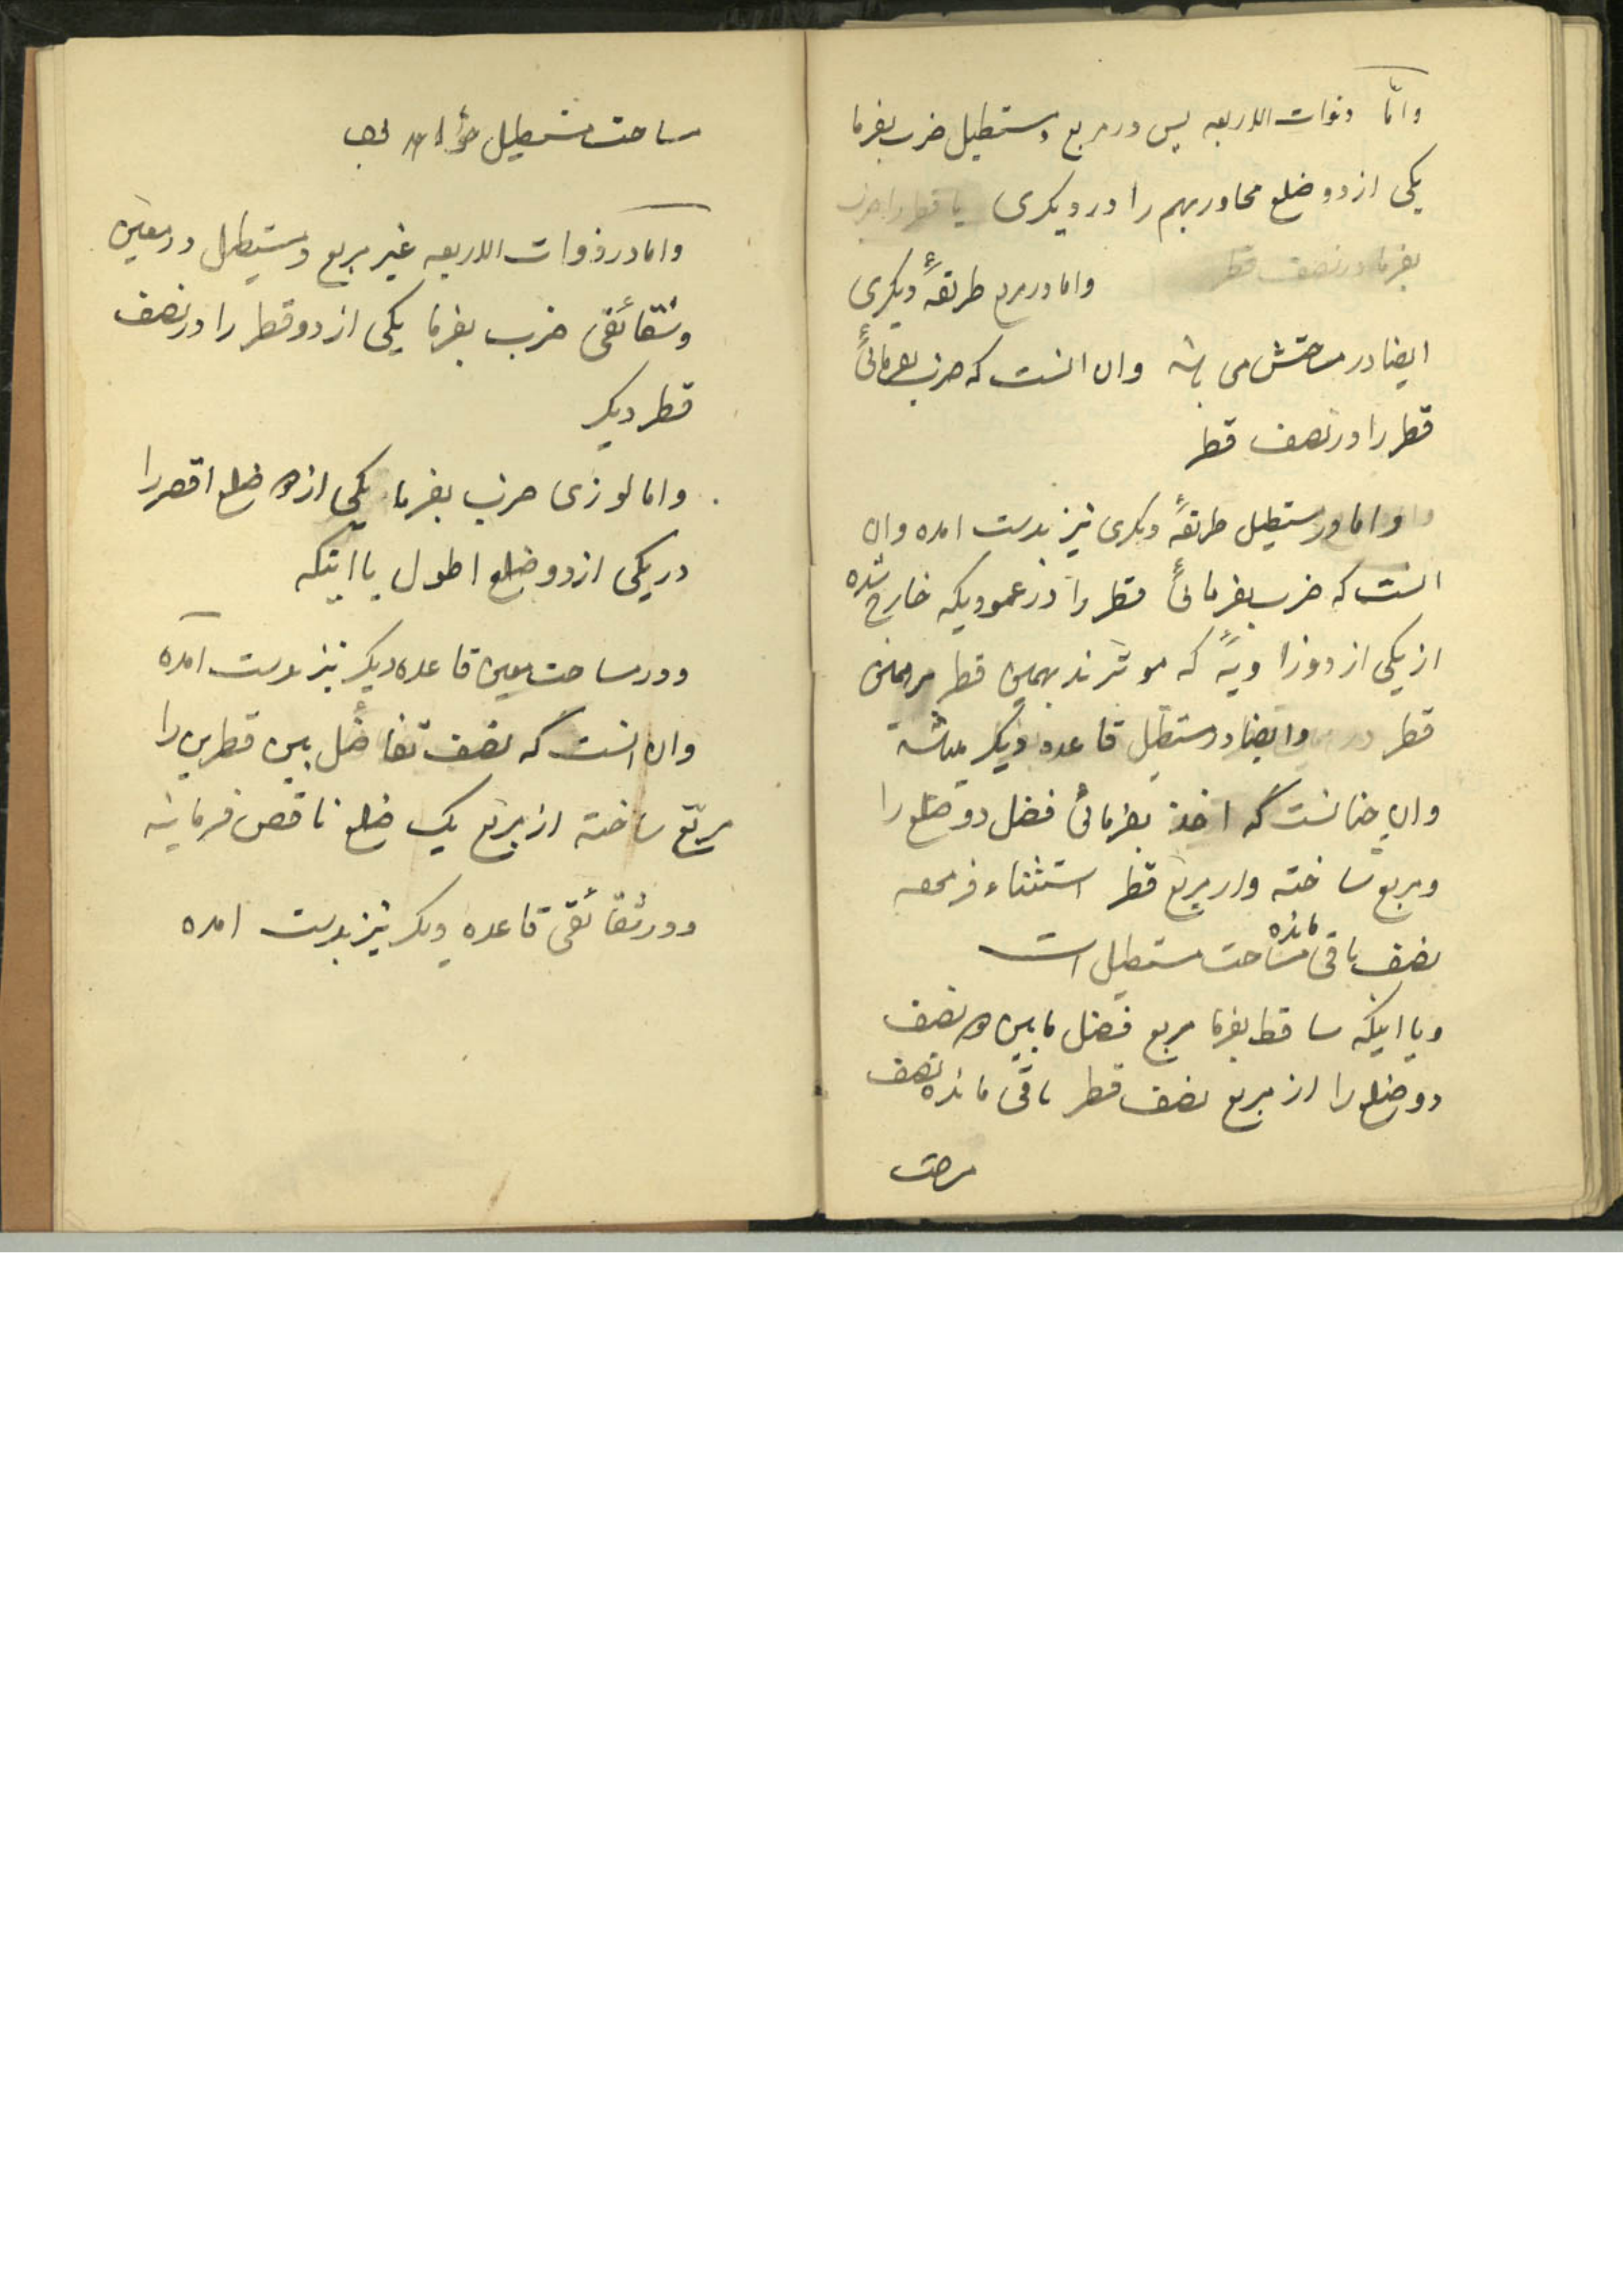 وامّا ذوات الاربعه پس در مربع ومستطیل ضرب بفرما
یکی از دو ضلع محاور بهم را در دیکری یا قطر را ضرب
بفرما در نصف قطر
واما در مربع طریقهٔ دیکری
ایضا در مساحتش می باشد وان انست که ضرب بفرمائی
قطر را در نصف قطر
واما در مستطیل طریقهٔ دیکری نیز بدست امده وان
انست که ضرب بفرمائی قطر را در عمودیکه خارج شده
از یکی از دو زاویهٔ که موترند بهمین قطر بر همین
قطر وایضا در مستطیل قاعده دیکر میباشد
وان چنانست که اخذ بفرمائی فضل دو ضلع را
ومربع ساخته واز مربع قطر استثناء فرموده
نصف باقی مانده مساحت مستطیل است
ویا اینکه ساقط بفرما مربع فضل مابین دو نصف
دو ضلع را از مربع نصف قطر باقی مانده نصف
مساحت
مساحت مستطیل خواهد بود
واما در ذوات الاربعه غیر مربع ومستطیل در معین
وشقائقی ضرب بفرما یکی از دو قطر را در نصف
قطر دیکر
واما لوزی ضرب بفرما یکی از دو ضلع اقصر را
در یکی از دو ضلع اطول یا اینکه
ودر مساحت معین قاعده دیکر نیز بدست آمده
وان انست که نصف تفاضل بین قطرین را
مربّع ساخته از مربع یک ضلع ناقص فرمایند
ودر شقائقی قاعده دیکر نیز بدست امده